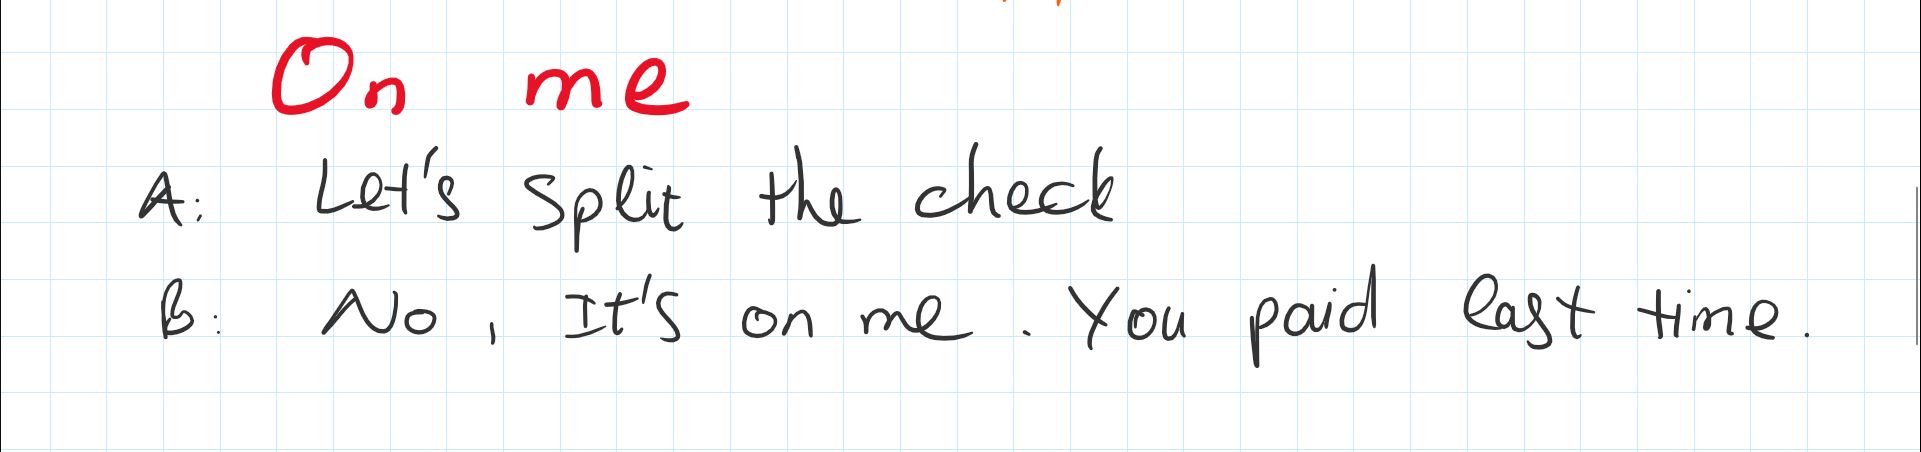 On me
A: Let's split the check
B: No, It's on me. You paid last time.